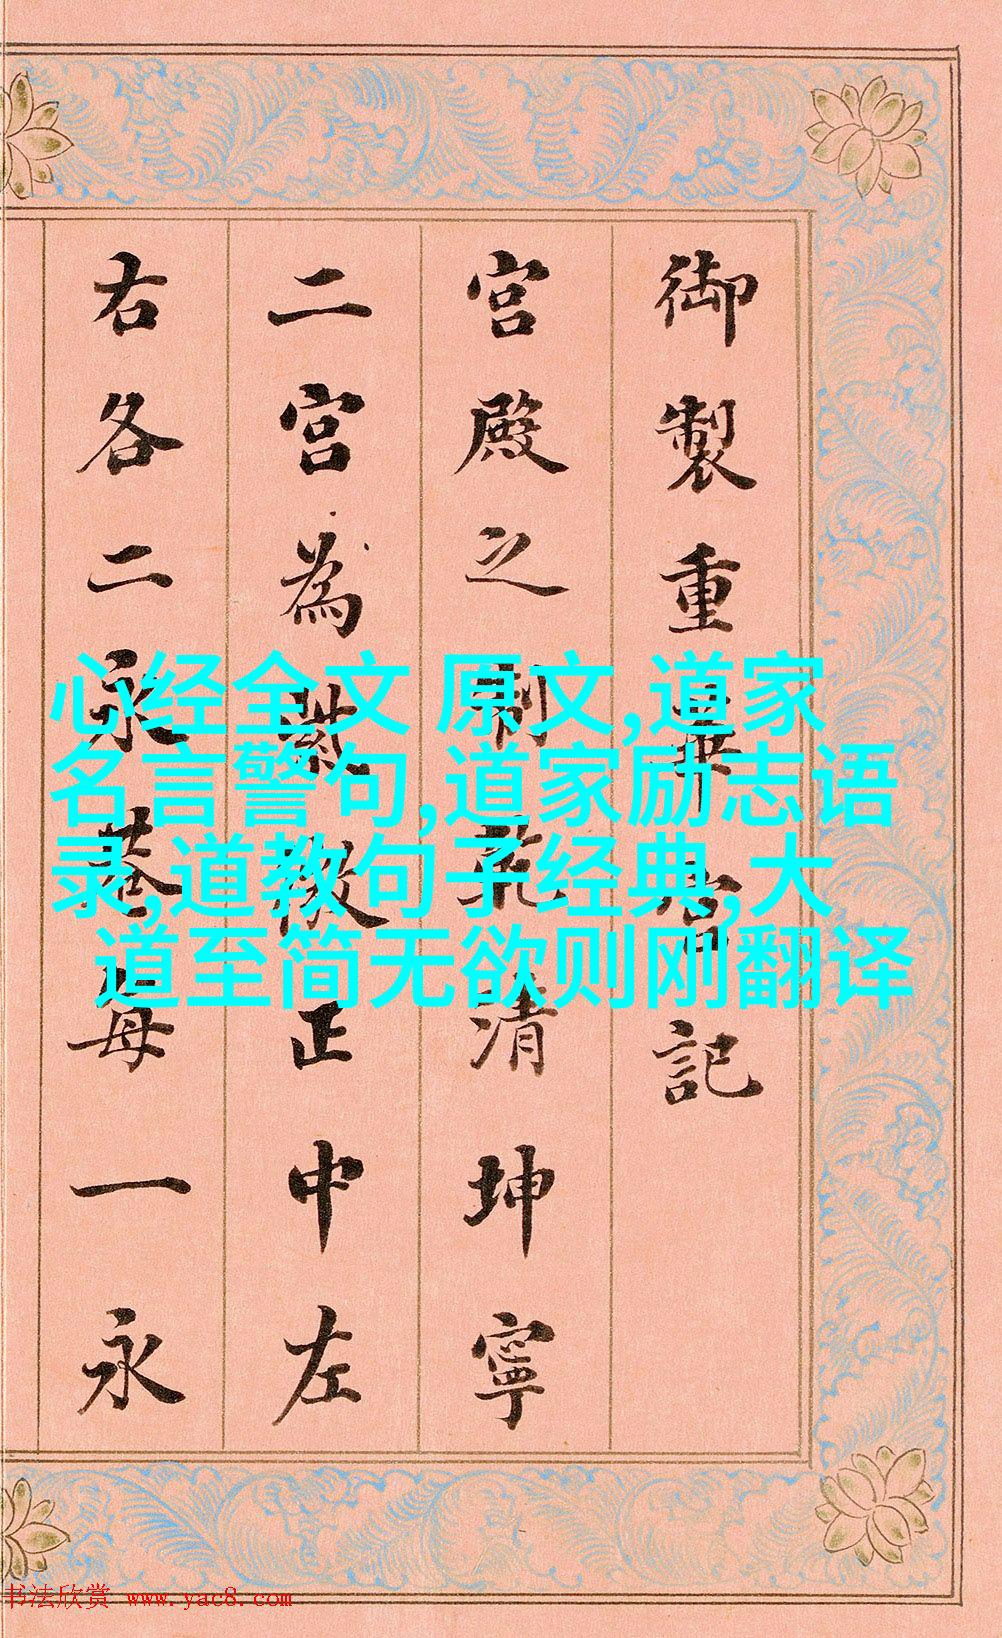 御製重華宮記
宮殿之制乾清坤寧
二宮為紫微正中左
右各二永巷每一永
心经全文 原文,道家
名言警句,道家励志语
录,道教句子经典,大
道至简无欲则刚翻译
书法欣赏 www.yac8.com